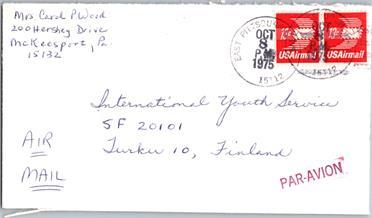 Mrs Carol P Wood
200 Hershey Drive
McKeesport, Pa.
15132
EAST PITTSBURGH
OCT
8
PM
1975
15112
13c
USAirmail
13c
USAirmail
International Youth Service
SF 20101
Turku 10, Finland
AIR
MAIL
PAR-AVION